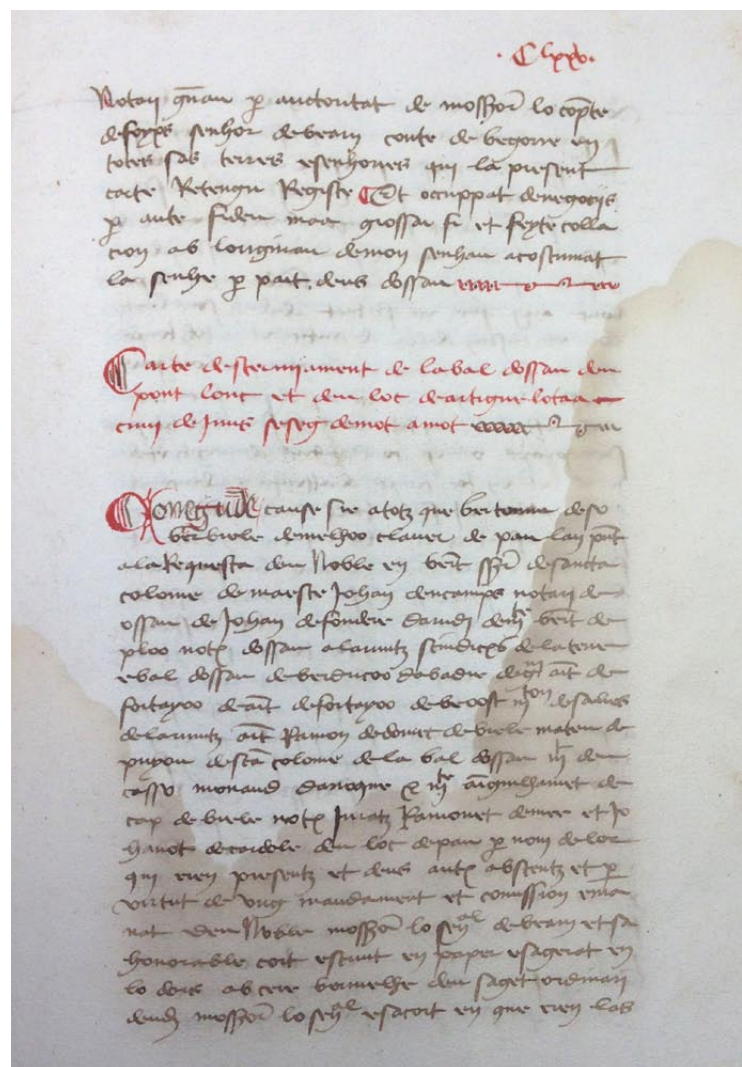 · Clxxv ·
Notari gñau p auctoritat de mossōr lo cōpte
de foyxs senhor de bearn conte de begorre en
totes sas terres e senhories qui la present
carte Retengu Registre Et occuppat de negocis
p aute fideu maa grossar fi et feyte colla
cion ab loriginau de mon senhau acostumat
la senhe p part deus dossau
Carte de sterminament de la bal dossau deu
pont lonc et deu loc de artigueloutaa
de Juus seseg de mot a mot
Conegude cause sie a totz que de so
berbiele de melhoo clauer de pau lan
a la Requesta deu Noble en de sancta
colome de maeste Johan dencamps notari de
ossau de Johan de fondere daudi bert de
ploo dossau a laruntz scindicxs de la terre
e bal dossau de berducoo dabadie ait de
fortayoo de ait de fortayoo de beoost de sales
de laruntz ait Ramon de domec de biele mateu de
puyou de scā colome de la bal dossau deu
casso monaud
cap de biele Juratz Ramonet de mee et Jo
hanot de cardole deu loc de pau p nom de lor
qui eren presentz et deus autz abscentz et p
virtut de ung mandament et comission ema
nat deu Noble mossōr lo señal de bearn et sa
honorable cort escriut en paper e sagerat en
lo dors ab cere bermelhe deu saget ordinari
deud mossōr lo señal e sa cort en que eren las